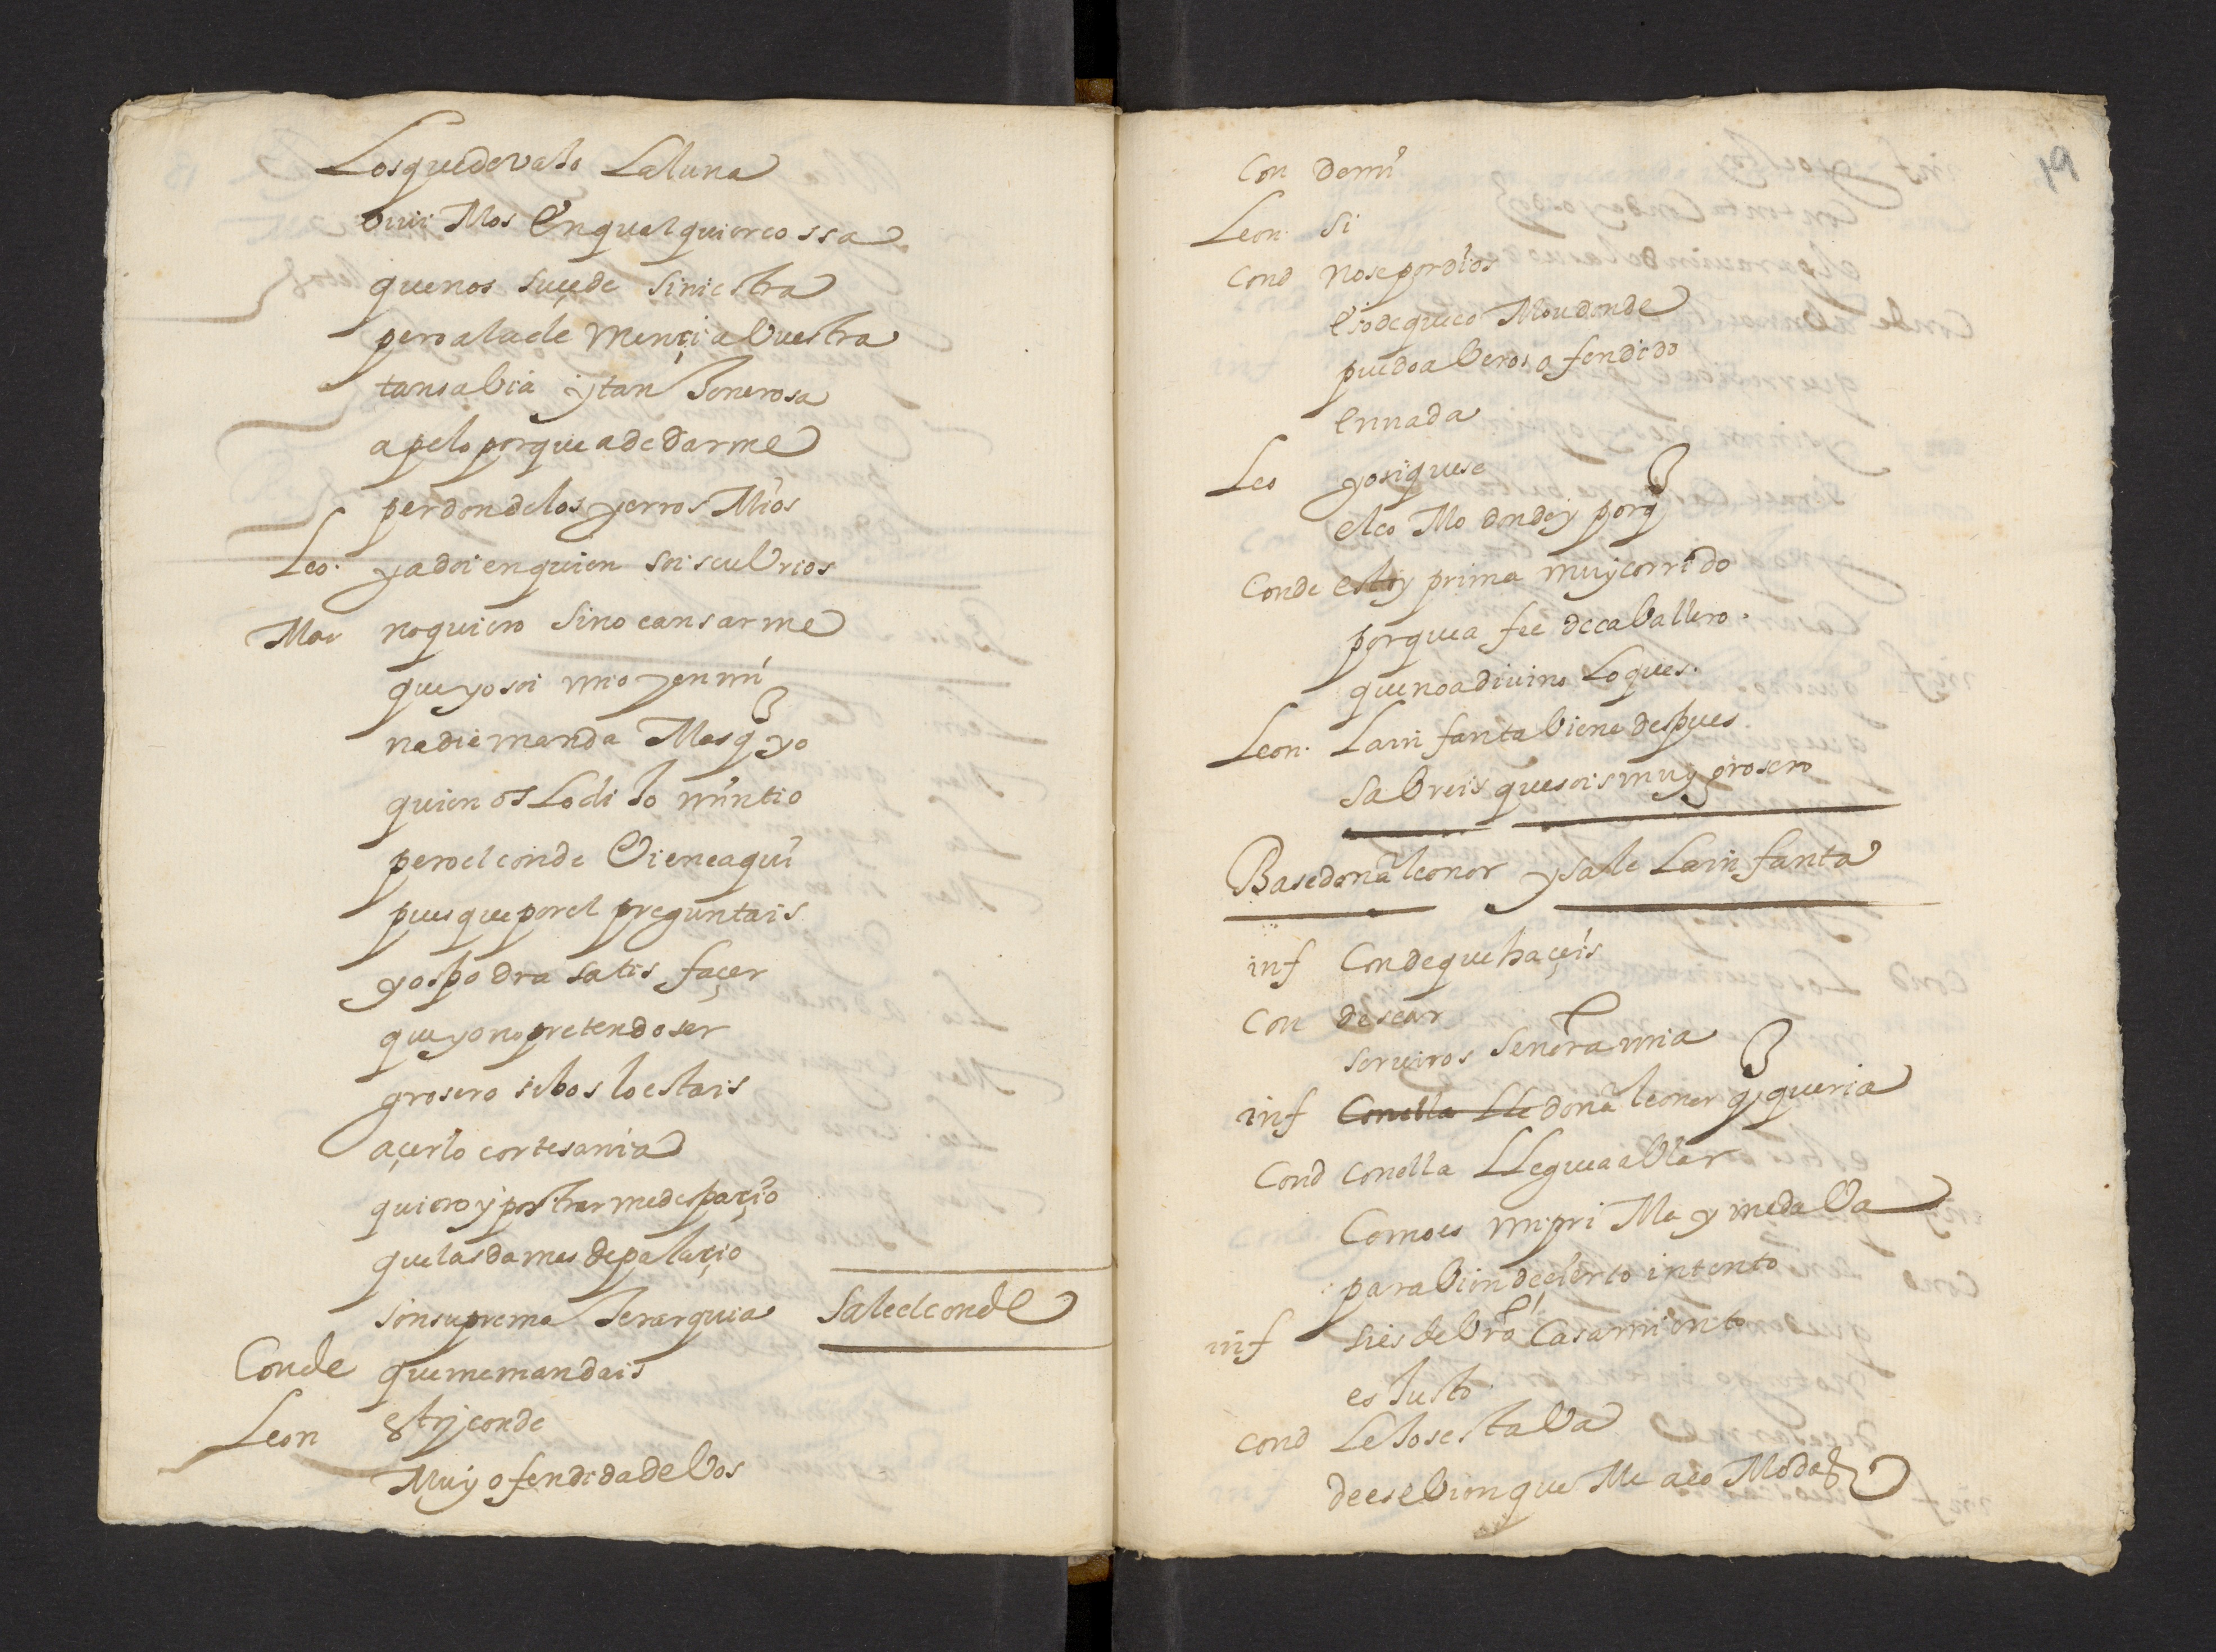 Los que devaJo La luna
vivi Mos En qualquier cossa
que nos suçede siniestra
pero a la cle mençia Vuestra
tan sabia y tan Jenerosa
apelo porque a de darme
perdon de los yerros Mios
Leo. ya doi en quien sois cubrios
Mar no quiero sino cansarme
que yo soi mio y en mi
nadie manda Mas q yo
quien os Lo diJo mintio
pero el conde Viene aqui
pues que por el preguntais
y os podra satisfaçer
que yo no pretendo ser
grosero si bos lo estais
açerlo cortesania
quiero y postrarme despaçio
que las damas de palaçio
son suprema Jerarquia Sale el conde
Conde que me mandais
Leon Estoy conde
Muy ofendida de Vos
19
Con de mi
Leon. si
Cond no se por dios
Eso de que co Mo u donde
puedo aberos ofendido
En nada
Leo yo si que se
el co Mo donde y porq
Conde estoy prima muy corrido
porque a fee de caballero.
que no adivino Lo que es.
Leon. La infanta biene despues
sabreis que sois muy grosero
Base doña leonor y sale La infanta
inf Conde que haçeis
Con desear
serviros señora mia
inf Con ella LLe doña leonor q queria
Cond Con ella LLegue a ablar
Como es mi pri Ma y me daba
parabien de çierto intento
inf si es de Vro Casamiento
es Justo
cond LeJos estaba
de ese bien que Me aco Moda